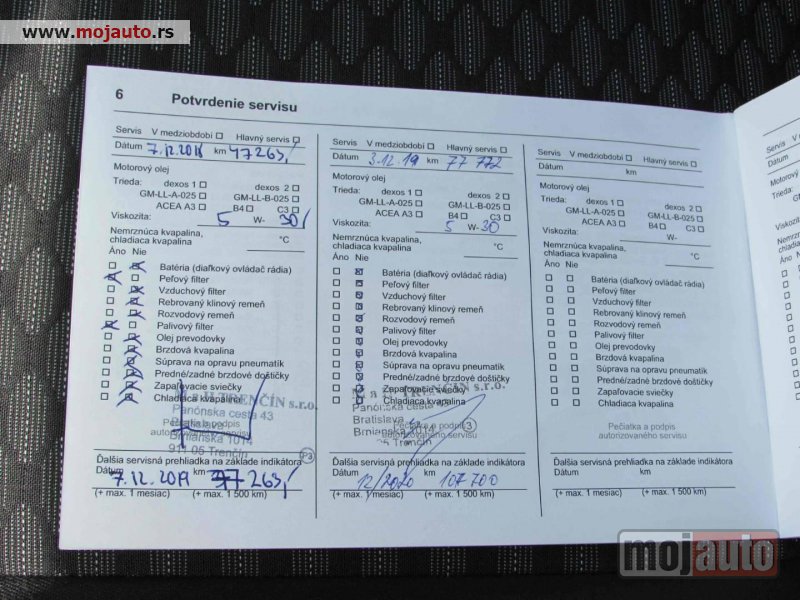 www.mojauto.rs
6 Potvrdenie servisu
Servis V medziobdobí Hlavný servis
Dátum 7.12.2018 km 47263,
Motorový olej
Trieda: dexos 1 dexos 2
GM-LL-A-025 GM-LL-B-025
ACEA A3 B4 C3
Viskozita: 5 W- 30
Nemrznúca kvapalina,
chladiaca kvapalina °C
Áno Nie
Batéria (diaľkový ovládač rádia)
Peľový filter
Vzduchový filter
Rebrovaný klinový remeň
Rozvodový remeň
Palivový filter
Olej prevodovky
Brzdová kvapalina
Súprava na opravu pneumatík
Predné/zadné brzdové doštičky
Zapaľovacie sviečky
Chladiaca kvapalina
TRENČÍN s.r.o.
Panónska cesta 43
Pečiatka a podpis
Bratislava
autorizovaného servisu
Brnianska 1014
911 05 Trenčín
P3
Ďalšia servisná prehliadka na základe indikátora
Dátum km
7.12.2019 77263,
(+ max. 1 mesiac) (+ max. 1 500 km)
Servis V medziobdobí Hlavný servis
Dátum 3.12.19 km 77 772
Motorový olej
Trieda: dexos 1 dexos 2
GM-LL-A-025 GM-LL-B-025
ACEA A3 B4 C3
Viskozita: 5 W- 30
Nemrznúca kvapalina,
chladiaca kvapalina °C
Áno Nie
Batéria (diaľkový ovládač rádia)
Peľový filter
Vzduchový filter
Rebrovaný klinový remeň
Rozvodový remeň
Palivový filter
Olej prevodovky
Brzdová kvapalina
Súprava na opravu pneumatík
Predné/zadné brzdové doštičky
Zapaľovacie sviečky
Chladiaca kvapalina
TRENČÍN s.r.o.
Panónska cesta
Bratislava
Pečiatka a podpis
Brnianska 1014
autorizovaného servisu
05 Trenčín
Ďalšia servisná prehliadka na základe indikátora
Dátum km
12/2020 107 700
(+ max. 1 mesiac) (+ max. 1 500 km)
Servis V medziobdobí Hlavný servis
Dátum km
Motorový olej
Trieda: dexos 1 dexos 2
GM-LL-A-025 GM-LL-B-025
ACEA A3 B4 C3
Viskozita: W-
Nemrznúca kvapalina,
chladiaca kvapalina °C
Áno Nie
Batéria (diaľkový ovládač rádia)
Peľový filter
Vzduchový filter
Rebrovaný klinový remeň
Rozvodový remeň
Palivový filter
Olej prevodovky
Brzdová kvapalina
Súprava na opravu pneumatík
Predné/zadné brzdové doštičky
Zapaľovacie sviečky
Chladiaca kvapalina
Pečiatka a podpis
autorizovaného servisu
Ďalšia servisná prehliadka na základe indikátora
Dátum km
(+ max. 1 mesiac) (+ max. 1 500 km)
Servis
Dátum
Motorový
Trieda:
Viskozita:
Nemrznúca
chladiaca
Áno Nie
mojauto